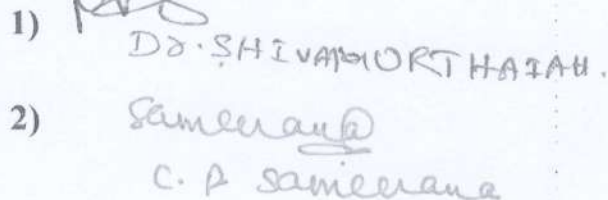 1)
Dr. SHIVAMURTHAIAH.
2) Sameerana
C. P Sameerana